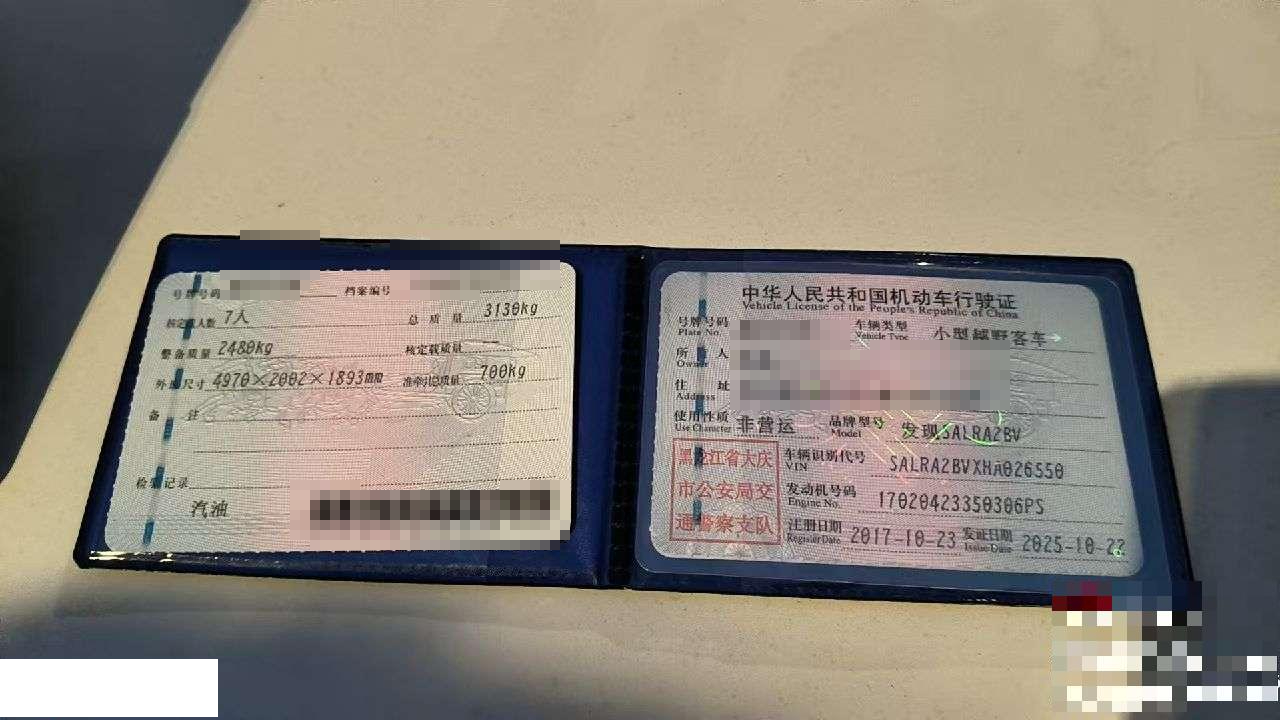 号牌号码
档案编号
核定载人数 7人
总质量 3130kg
整备质量 2480kg
核定载质量
外廓尺寸 4970×2002×1893mm
准牵引总质量 700kg
备注
检验记录
汽油
中华人民共和国机动车行驶证
Vehicle License of the People's Republic of China
号牌号码
Plate No.
车辆类型 小型越野客车
Vehicle Type
所有人
Owner
住址
Address
使用性质 非营运
Use Character
品牌型号 发现SALRA2BV
Model
黑龙江省大庆
市公安局交
通警察支队
车辆识别代号 SALRA2BVXHA026550
VIN
发动机号码 17020423350306PS
Engine No.
注册日期 2017-10-23
Register Date
发证日期 2025-10-22
Issue Date